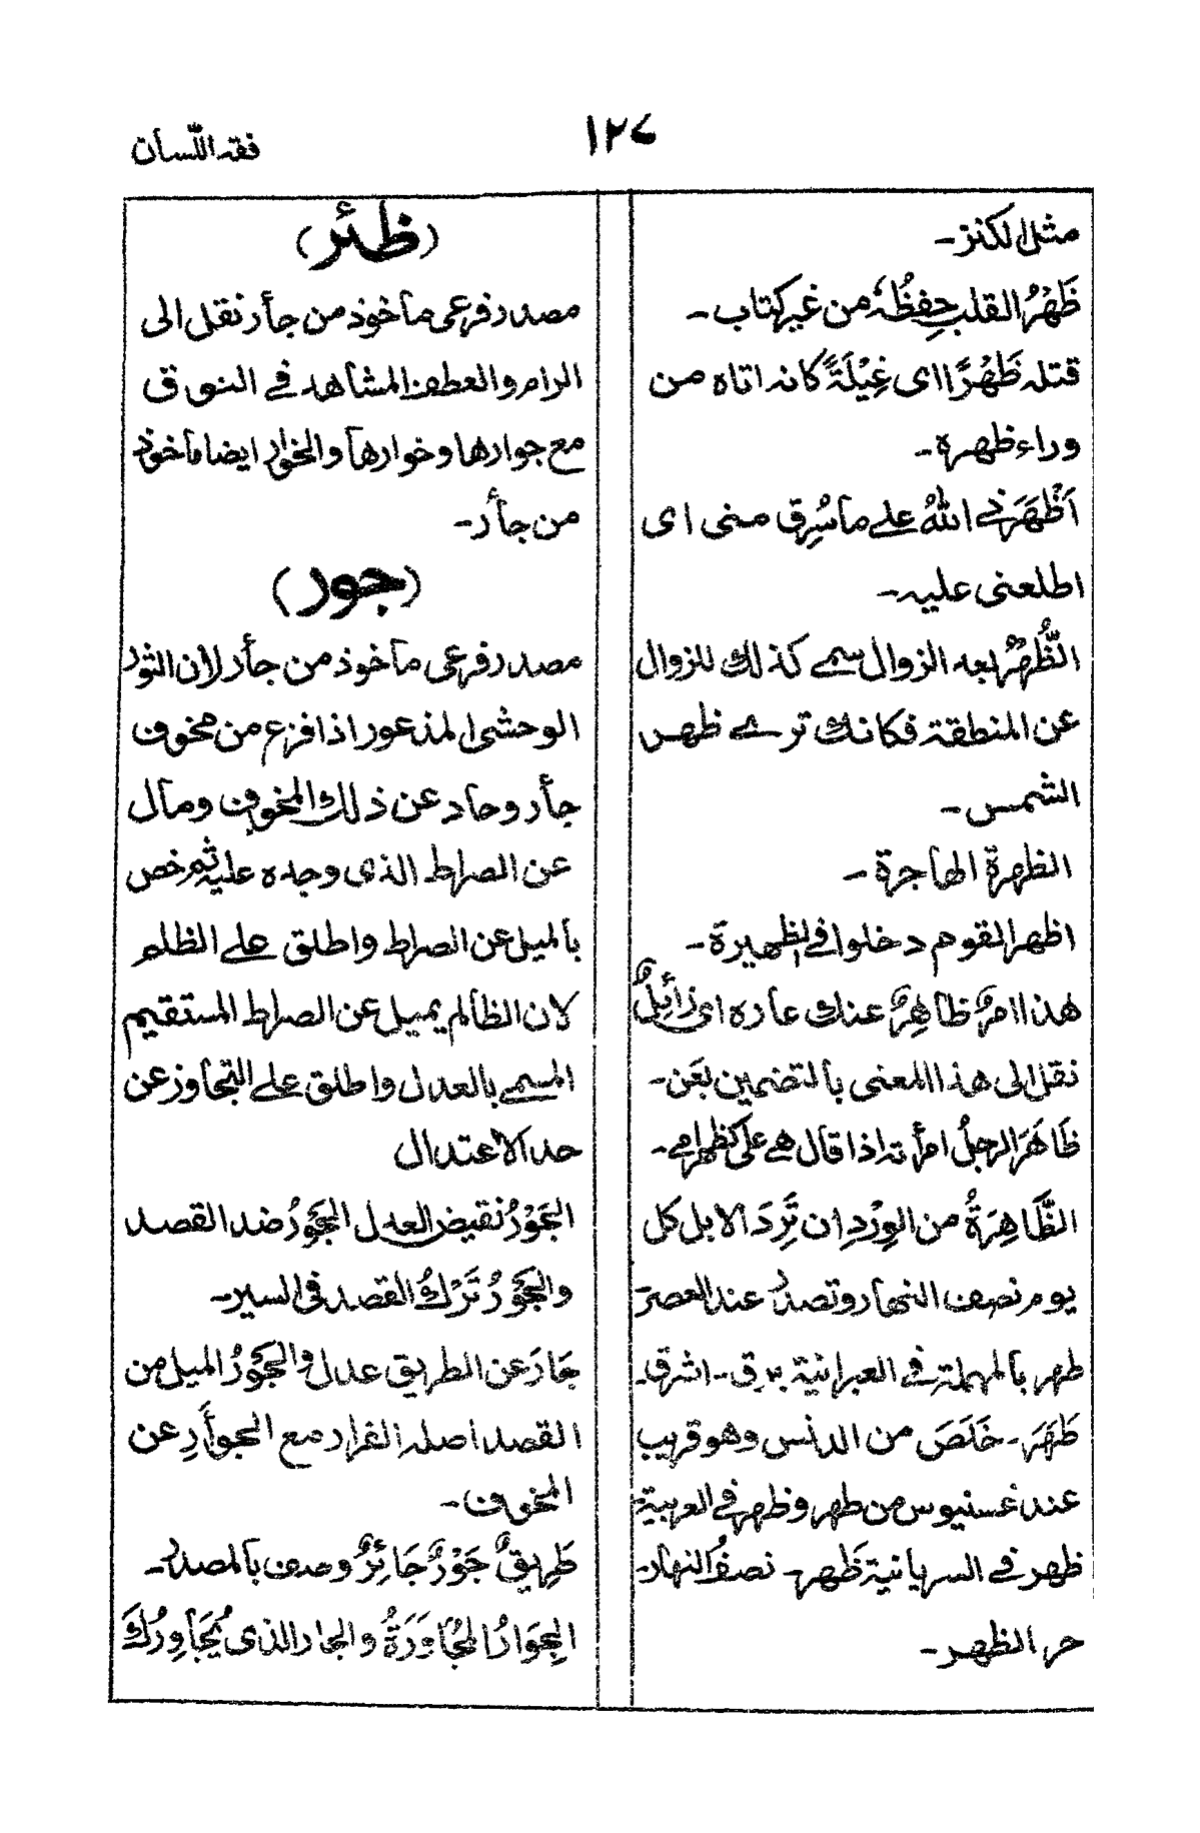 ١٢٧
فقه اللسان
مثل الكنز-
ظَهْرُ القلب حِفِظُهٗ من غير كتاب-
قتله ظَهْرًا اى غِيْلَةً كانه اتاه من
وراء ظهره-
اَظْهَرَنے اللهُ علے ما سُرِق منى اى
اطلعنى عليه-
الظُّهْرُ بعد الزوال سمے كذلك للزوال
عن المنطقة فكانك ترے ظهر
الشمس-
الظهرة الهاجرة-
اظهر القوم دخلوا فى الظهيرة-
هذا امرٌ ظاهِرٌ عنك عاره اى زائِلٌ
نقل الى هذا المعنى بالتضمين بعَن-
ظَاهَرَ الرجلُ امرأته اذا قال هے علىّ كظهر امے-
الظَّاهِرَةُ من الوِرْدِ ان تَرِدَ الابل كل
يوم نصف النهار وتصدُر عند العصر
طهر بالمهملة فے العبرانية برق- اشرق-
طَهَرَ- خَلَصَ من الدنس وهو قريب
عند غسنيوس من طهر وظهر فے العربية
ظهر فے السريانية ظَهر- نصفُ النهار-
حر الظهر-
(ظئر)
مصدر فرعى ماخوذ من جأر نقل الى
الرام والعطف المشاهد فے النوق
مع جوارها وخوارها والخوار ايضا ماخوذ
من جأر-
(جور)
مصدر فرعى ماخوذ من جأر لان الثور
الوحشى المذعور اذا فزع من مخوف
جأر وحاد عن ذلك المخوف ومال
عن الصراط الذى وجده عليه ثم خص
بالميل عن الصراط واطلق علے الظلم
لان الظالم يميل عن الصراط المستقيم
المسمے بالعدل واطلق علے التجاوز عن
حد الاعتدال
الجَوْرُ نقيض العدل الجَوْرُ ضد القصد
والجَوْرُ تَرْكُ القصد فى السير-
جَارَ عن الطريق عدل والجَوْرُ الميل من
القصد اصله الفرار مع الجوأر عن
المخوف-
طَرِيقٌ جَوْرٌ جَائِرٌ وصف بالمصدر-
الجِوَارُ المُجَاوَرَةُ والجار الذى يُجَاوِرُكَ